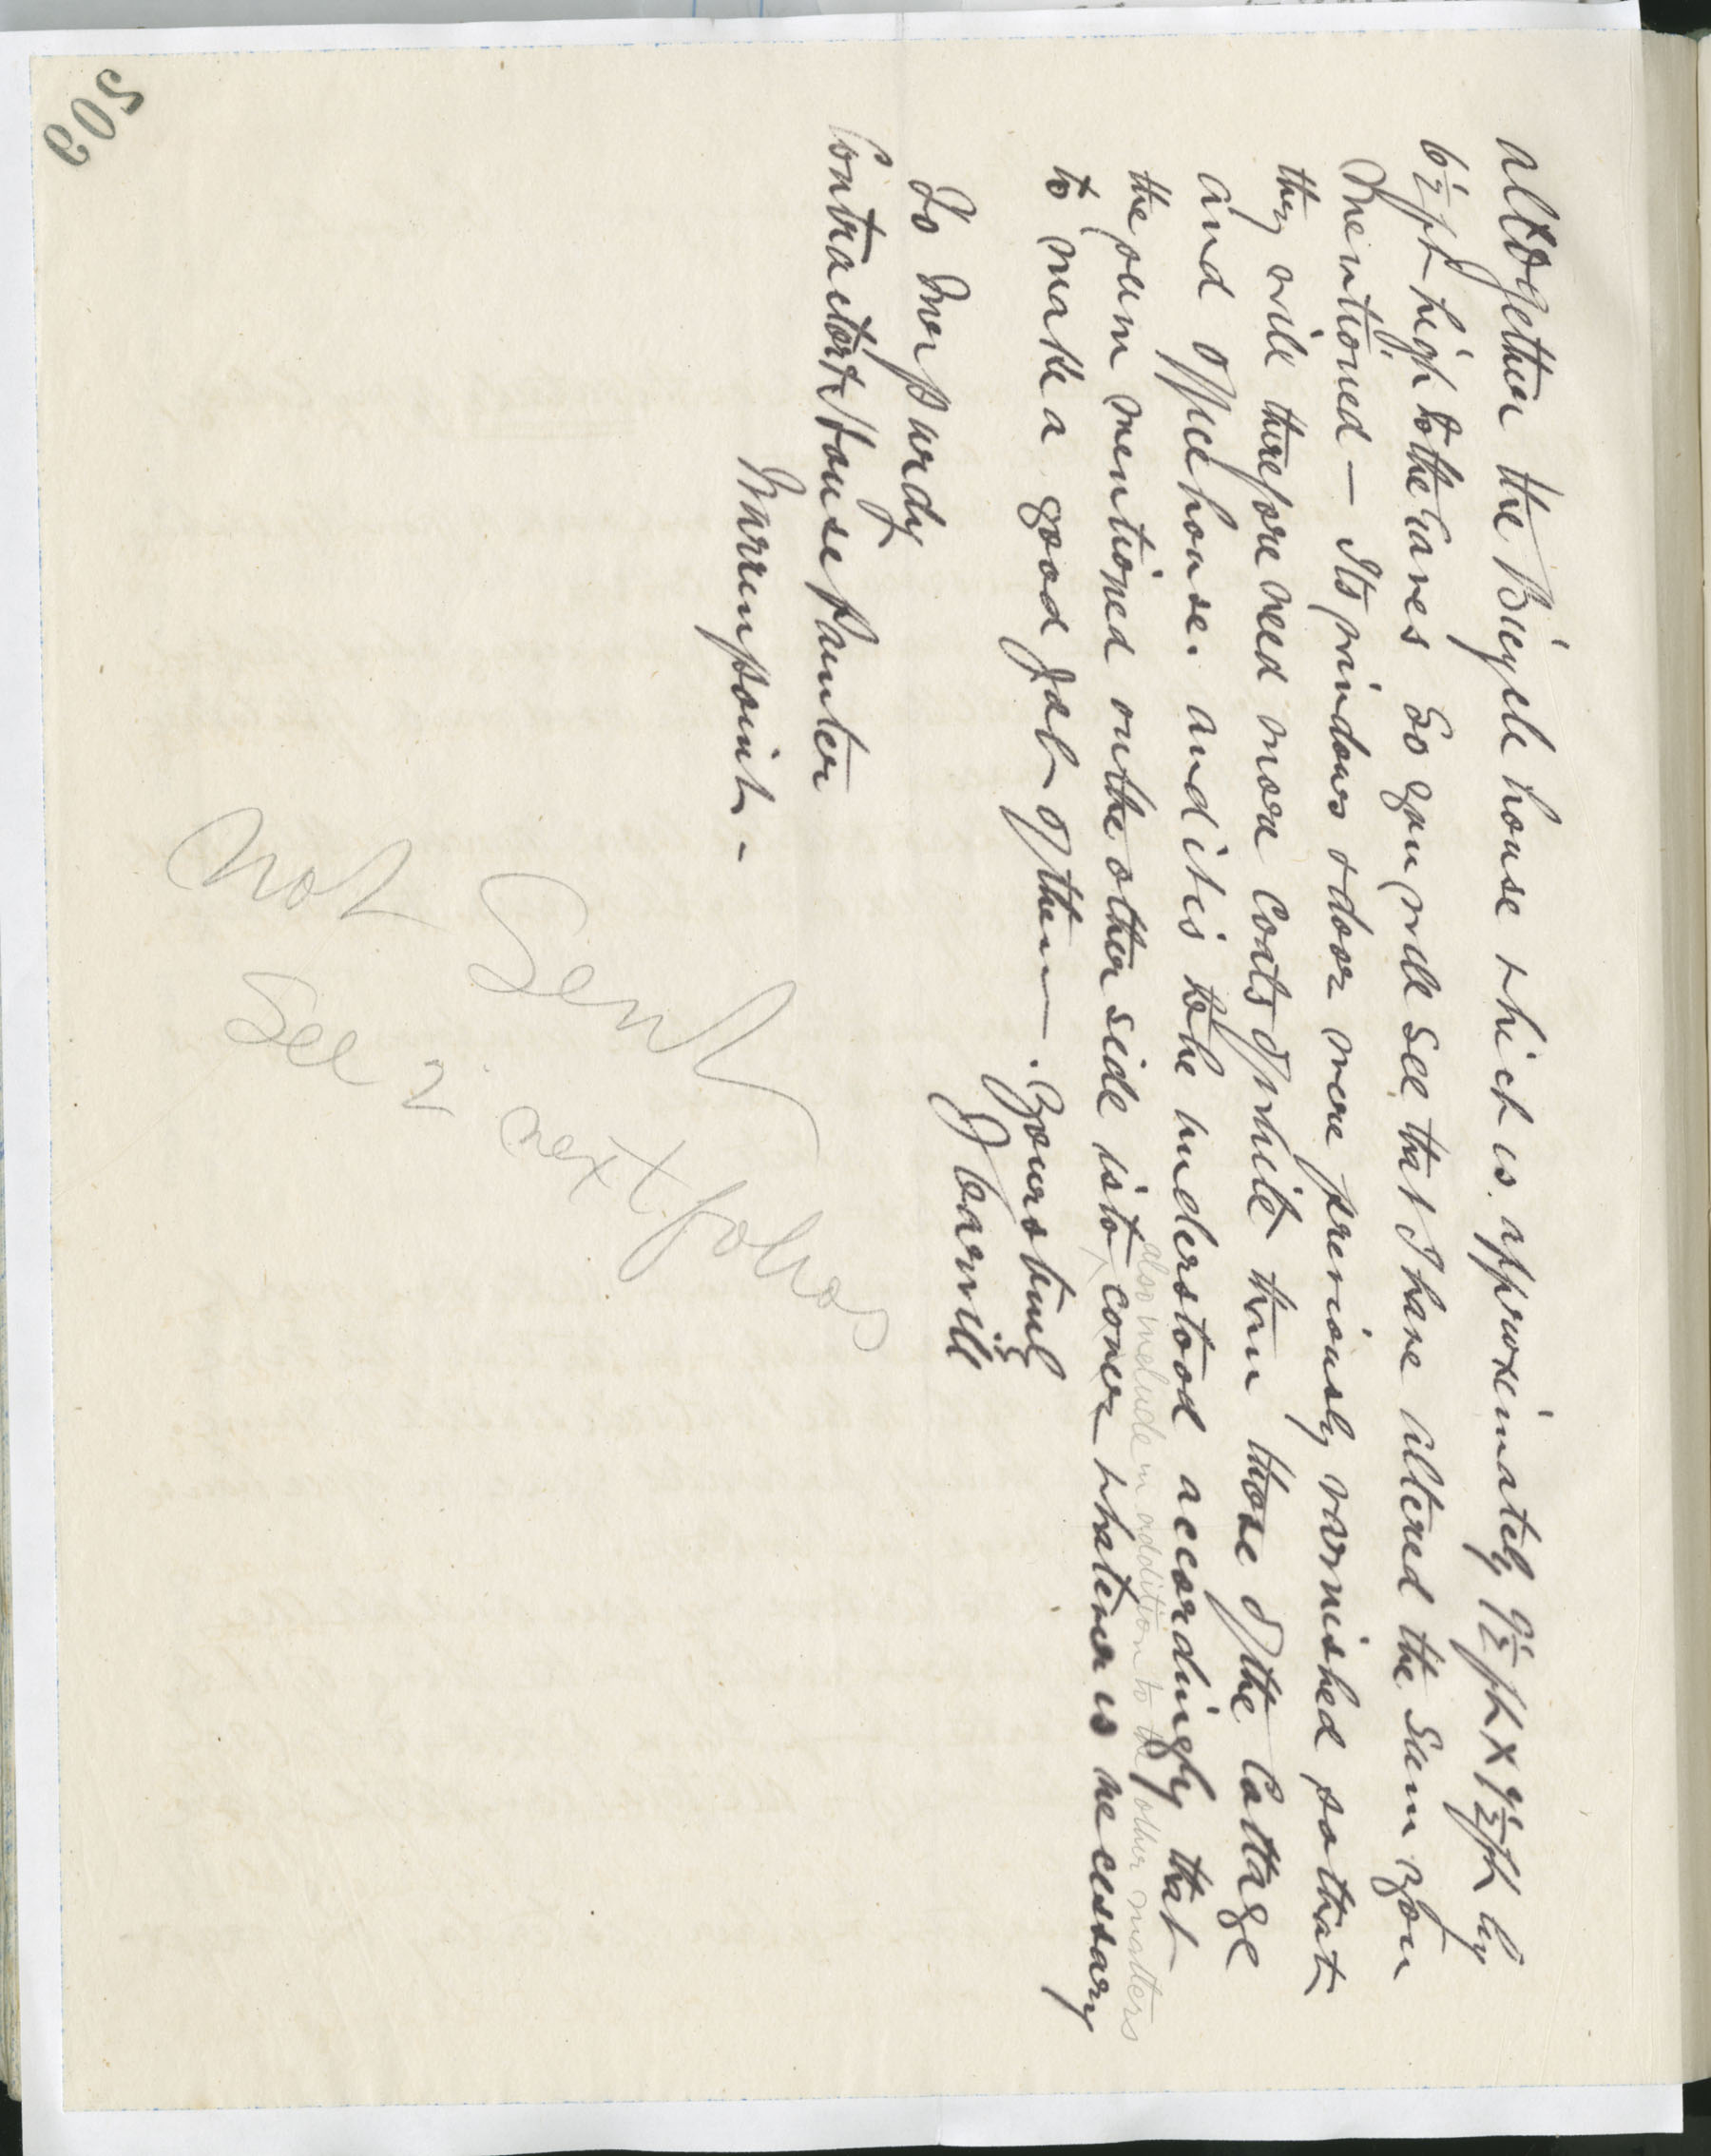 altogether the Bicycle house which is approximately 9½ ft x 9½ ft by
6½ ft high to the Eaves So you will see that I have altered the Sum you
mentioned — Its windows & door were previously varnished so that
they will therefore need more Coats of white than those of the Cottage
and office house. and it is to be understood accordingly that
also include in addition to the other matters
the sum mentioned on the other side is to cover whatever is necessary
to make a good Job of them —. Yours truly
J Carvill
To Mr Purdy
Contractor & House Painter
Warrenpoint -
Not Sent
See 2 next folios
503